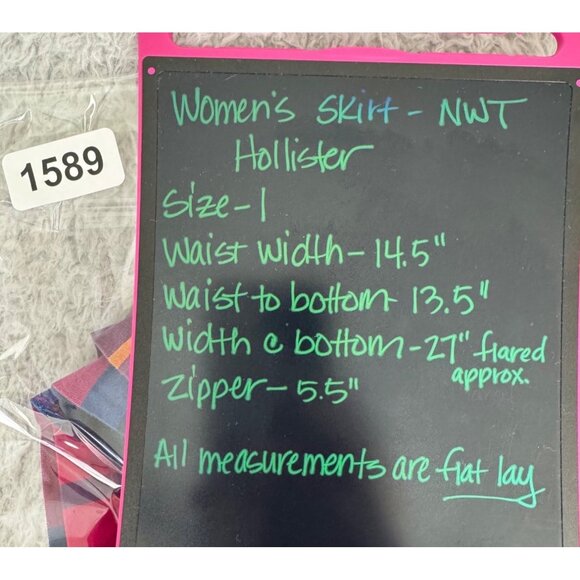 1589
Women's Skirt - NWT
Hollister
Size - 1
Waist width - 14.5"
Waist to bottom - 13.5"
Width @ bottom - 27" flared
approx.
Zipper - 5.5"
All measurements are flat lay